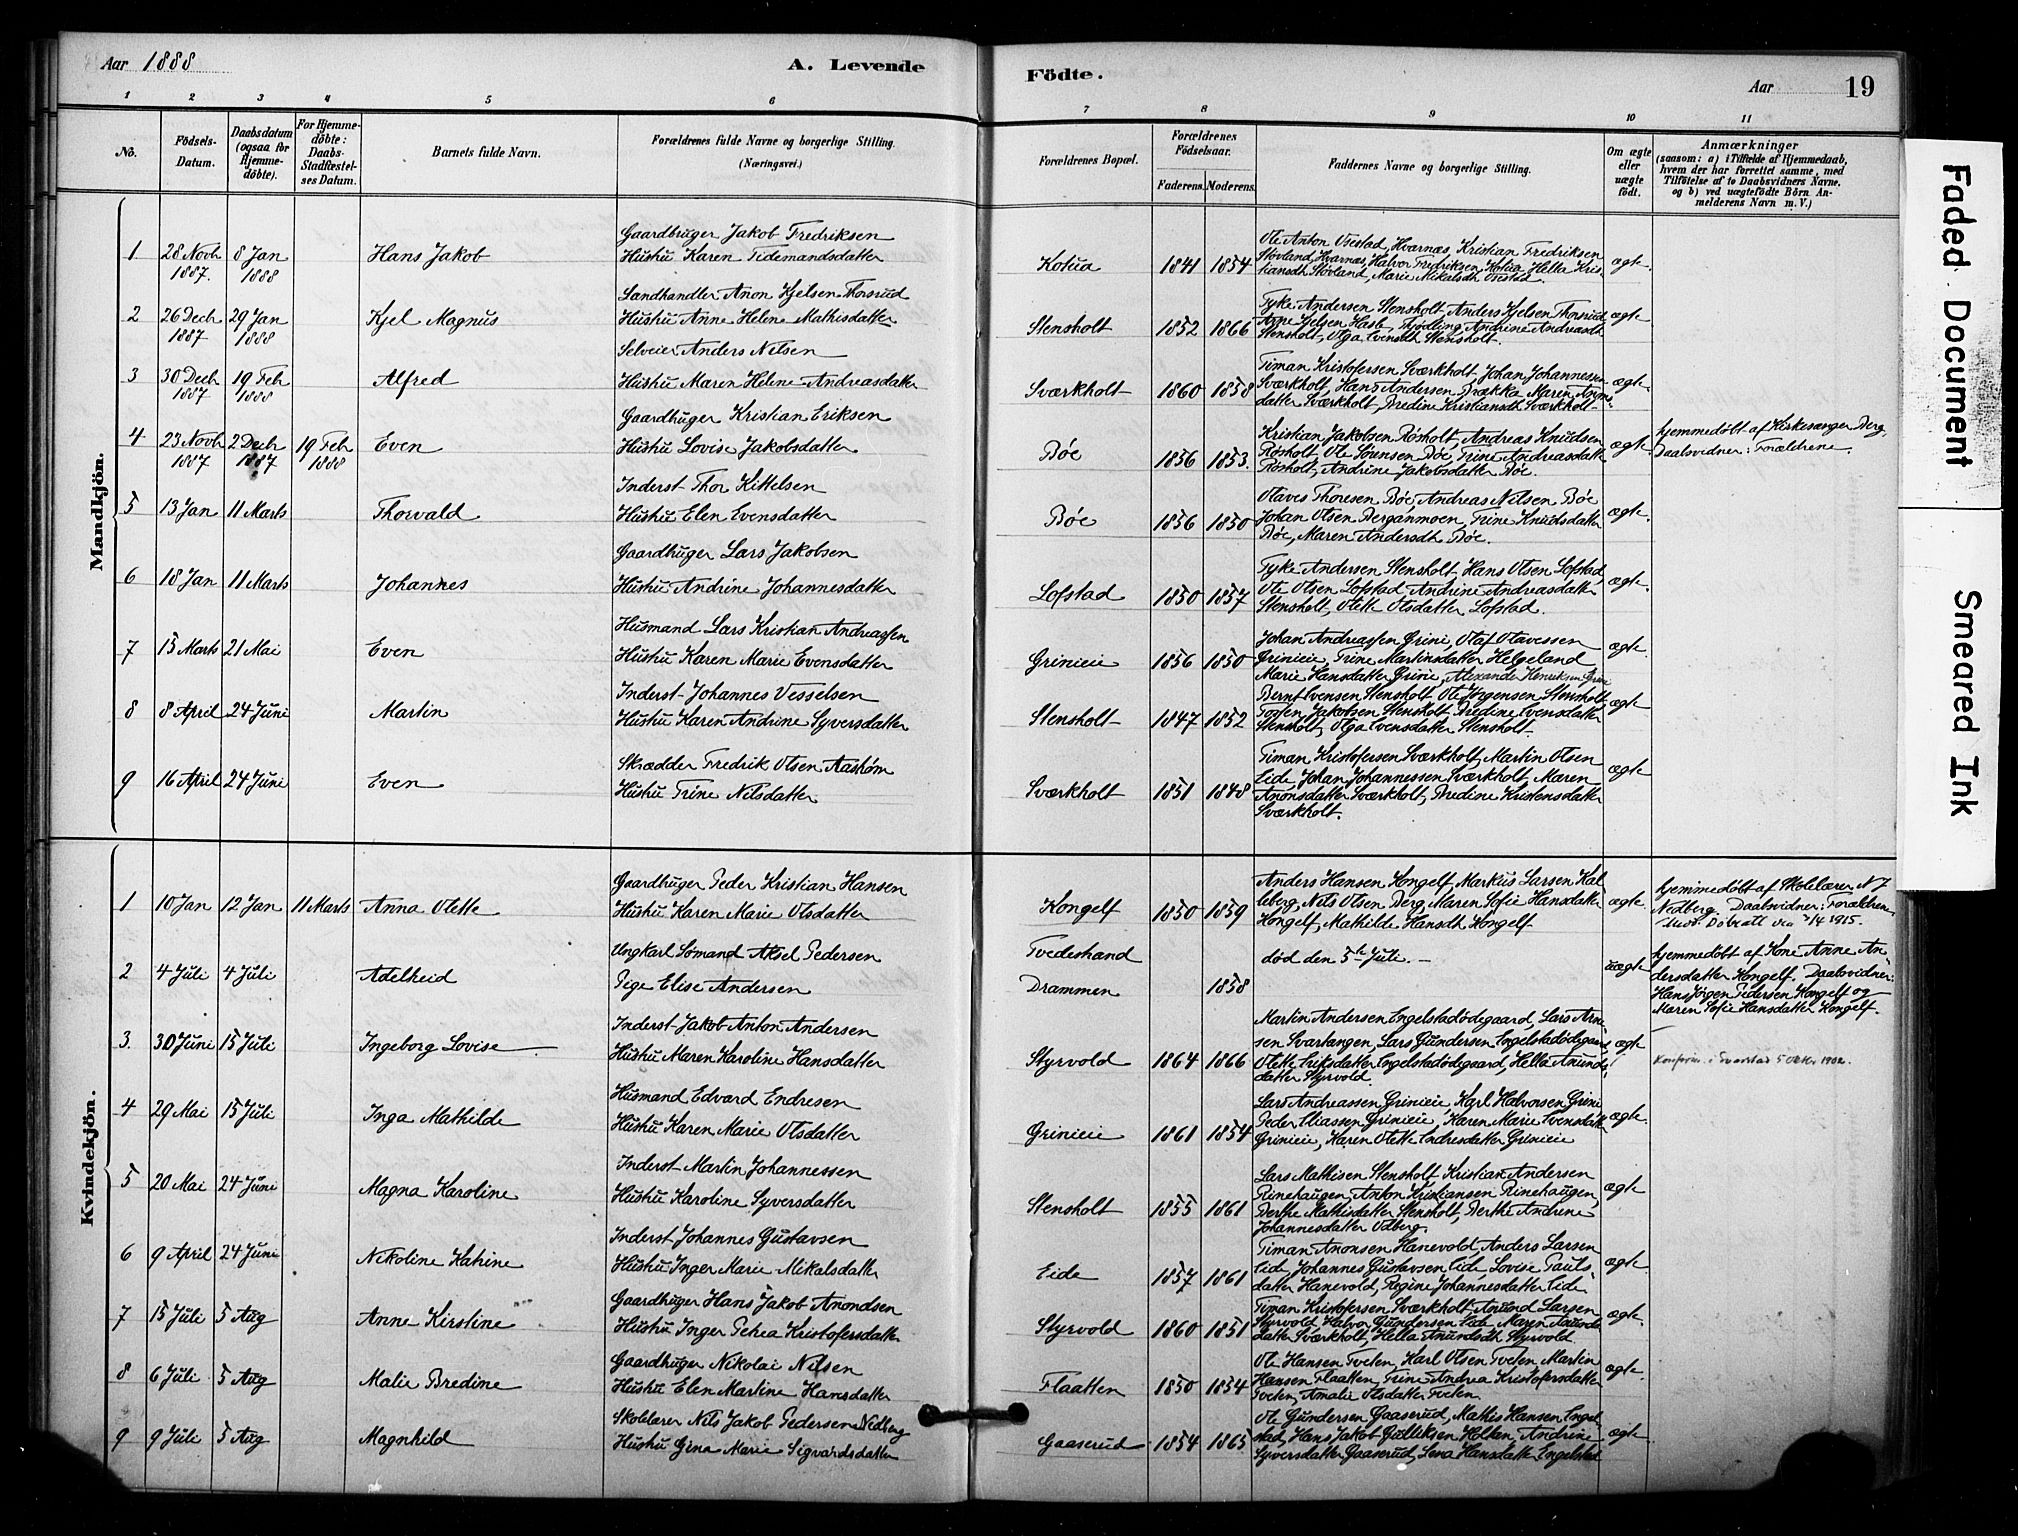 Aar 1888
A. Levende
Födte.
Aar 19
1 2 3 4 5 6 7 8 9 10 11
No.
Födsels-Datum.
Daabsdatum (ogsaa for Hjemme-döbte).
For Hjemme-döbte: Daabs-Stadfæstel-ses Datum.
Barnets fulde Navn.
Forældrenes fulde Navne og borgerlige Stilling. (Næringsvei.)
Forældrenes Bopæl.
Forældrenes Födselsaar.
Faderens. Moderens.
Faddernes Navne og borgerlige Stilling.
Om ægte eller uægte födt.
Anmærkninger
(saasom: a) i Tilfælde af Hjemmedaab, hvem der har forrettet samme, med Tilföielse af to Daabsvidners Navne, og b) ved uægtefödte Börn An-melderens Navn m. V.)
Mandkjön.
Gaardbruger Jakob Fredriksen
1 28 Novb 1887. 8 Jan 1888 Hans Jakob Hustru Karen Tidemandsdatter Kotua 1841 1854 ægte.
Ole Anton Vrestad, Hvarnæs, Kristian Fredriksen
Stovland, Hvarnæs, Halvor Fredriksen, Kotua, Hella Kris-
tiansdt Stovland, Marie Mikalsdt Vrestad.
Landhandler Anon Kjelsen Thorsrud
2 26 Decb 1887 29 Jan 1888 Kjel Magnus Hustru Anne Helene Mathisdatter Stensholt 1852 1866 ægte
Tyke Andersen Stensholt, Anders Kjelsen Thorsrud
Arne Kjelsen Hasle, Thjødling, Andrine Andreasdt
Stensholt, Olga Evensdt Stensholt.
Selveier Anders Nilsen
3 30 Decb 1887 19 Feb 1888 Alfred Hustru Maren Helene Andreasdatter Sværkholt 1860 1858 ægte
Timan Kristofersen Sværkholt, Johan Johannessen
Sværkholt, Hans Andersen Brækka, Maren Anons-
datter Sværkholt, Bredine Kristiansdt Sværkholt
Gaardbruger Kristian Eriksen
4 23 Novb 1887 2 Decb 1887 19 Febr 1888 Even Hustru Lovise Jakobsdatter Bøe 1856 1853. ægte
Kristian Jakobsen Rosholt, Andreas Knudsen
Rosholt, Ole Sørensen Bøe, Trine Andreasdatter
Rosholt, Andrine Jakobsdatter Bøe.
hjemmedöbt af Kirkesanger Berg.
Daabsvidner: Forældrene.
Inderst Thor Kittelsen
5 13 Jan 11 Marts Thorvald Hustru Elen Evensdatter Bøe 1856 1850 ægte.
Olaves Thoresen Bøe, Andreas Nilsen Bøe
Johan Olsen Berganmoen, Trine Knudsdatter
Bøe, Maren Andersdt Bøe.
Gaardbruger Lars Jakobsen
6 18 Jan 11 Marts Johannes Hustru Andrine Johannesdatter Lofstad 1850 1857 ægte.
Tyke Andersen Stensholt, Hans Olsen Lofstad,
Ole Olsen Lofstad, Andrine Andreasdatter
Stensholt, Olette Olsdatter Lofstad.
Husmand Lars Kristian Andreassen
7 15 Marts 21 Mai Even Hustru Karen Marie Evensdatter Grinieie 1856 1850 ægte.
Johan Andreassen Grini, Olaf Olavessen
Grinieie, Trine Martinsdatter Helgeland
Marie Hansdatter Grini, Alexander Henriksen Grini
Inderst Johannes Vesselsen
8 8 April 24 Juni Martin Hustru Karen Andrine Syversdatter Stensholt 1847 1852 ægte
Bernt Evensen Stensholt, Ole Jørgensen Stensholt,
Torsen Jakobsen Stensholt, Bredine Evensdatter
Stensholt, Olga Evensdatter Stensholt.
Skrædder Fredrik Olsen Aasholm
9 16 April 24 Juni Even Hustru Trine Nilsdatter Sværkholt 1851 1848 ægte
Timan Kristofersen Sværkholt, Martin Olsen
Eide, Johan Johannessen Sværkholt, Maren
Anonsdatter Sværkholt, Bredine Kristensdatter
Sværkholt.
Kvindekjön.
Gaardbruger Peder Kristian Hansen
1 10 Jan 12 Jan 11 Marts Anna Olette Hustru Karen Marie Olsdatter Kongelf 1850 1859 ægte
Anders Hansen Kongelf, Markus Larsen Kal-
leberg, Nils Olsen Berg, Maren Sofie Hansdatter
Kongelf, Mathilde Hansdt Kongelf
hjemmedöbt af Skolelærer N J
Nedberg. Daabsvidner: Forældrene
Døbeatt 1915.
Ungkarl Sømand Aksel Pedersen Tvedestrand
2 4 Juli 4 Juli Adelheid Pige Elise Andersen Drammen 1858 uægte
død den 5te Juli. —
hjemmedöbt af Kone Anne An-
dersdatter Kongelf. Daabsvidner:
Hans Jörgen Pedersen Kongelf og
Maren Sofie Hansdatter Kongelf.
Inderst Jakob Anton Andersen
3. 30 Juni 15 Juli Ingeborg Lovise Hustru Maren Karoline Hansdatter Styrvold 1864 1866 ægte
Martin Andersen Engelstadödegaard, Lars Arne-
sen Svartangen, Lars Gundersen Engelstadödegaard
Olette Eriksdatter Engelstadödegaard, Hella Anunds-
datter Styrvold.
Konfirm. i Svarstad 5 Oktbr 1902.
Husmand Edvard Endresen
4 29 Mai 15 Juli Inga Mathilde Hustru Karen Marie Olsdatter Grinieie 1861 1854 ægte
Lars Andreassen Grinieie, Karl Halvorsen Grini
Peder Eliassen Grinieie, Karen Marie Evensdatt
Grinieie, Karen Olette Endresdatter Grinieie
Inderst Martin Johannessen
5 20 Mai 24 Juni Magna Karoline Hustru Karoline Syversdatter Stensholt 1855 1861 ægte
Lars Mathisen Stensholt, Kristian Andersen
Rinehaugen, Anton Kristiansen Rinehaugen,
Berthe Mathisdatter Stensholt, Berthe Andrine
Johannesdatter Odberg.
Inderst Johannes Gustavsen
6 9 April 24 Juni Nikoline Katrine Hustru Inger Marie Mikalsdatter Eide 1857 1861 ægte.
Timan Anonsen Hanevold, Anders Larsen
Eide, Johannes Gustavsen Eide, Lovise Pauls-
datter Hanevold, Regine Johannesdatter Eide
Gaardbruger Hans Jakob Anondsen
7 15 Juli 5 Aug Anne Kirstine Hustru Inger Petrea Kristofersdatter Styrvold 1860 1851 ægte.
Timan Kristofersen Sværkholt, Anund Larsen
Styrvold, Halvor Gundersen Eide, Maren Anunds-
datter Sværkholt, Hella Anundsdt Styrvold
Gaardbruger Nikolai Nilsen
8 6 Juli 5 Aug Malie Bredine Hustru Elen Martine Hansdatter Flaatten 1850 1854 ægte.
Ole Hansen Tveten, Karl Olsen Tveten, Martin
Hansen Flaatten, Trine Andrea Kristofersdatter
Tveten, Amalie Olsdatter Tveten.
Skolelærer Nils Jakob Pedersen Nedberg
9 9 Juli 5 Aug Magnhild Hustru Gina Marie Sigvardsdatter Gaaserud 1854 1865 ægte.
Ole Gundersen Gaaserud, Mathis Hansen Engel-
stad, Hans Jakob Gulliksen Holten, Andrine
Syversdatter Gaaserud, Lena Hansdatter Engelstad
Faded Document
Smeared Ink